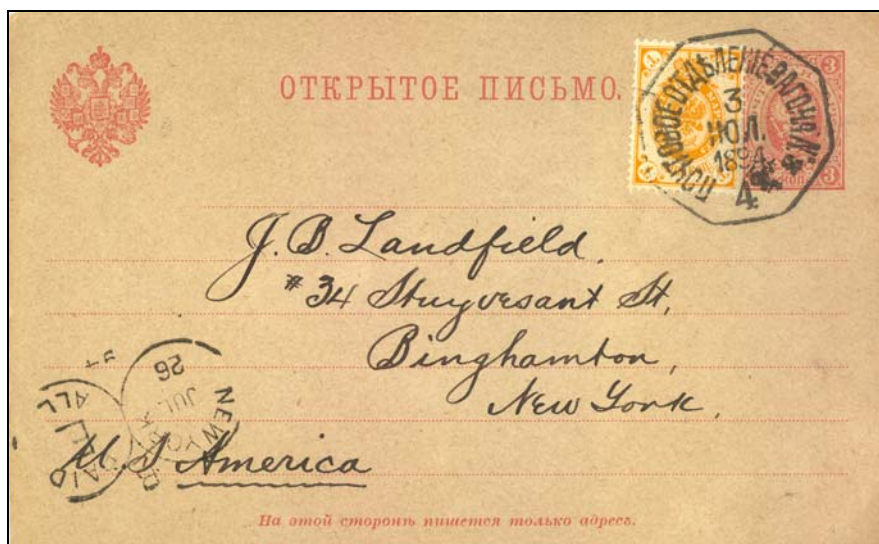 ОТКРЫТОЕ ПИСЬМО.
ПОЧТОВОЕ ОТДѢЛЕНІЕ ВАГОНЪ №
3
ИЮЛ.
1894
4
3
3
J. B. Landfield,
#34 Stuyvesant St,
Binghamton,
New York.
U. S America
NEW YORK
JUL
26
PAID
ALL
На этой сторонѣ пишется только адресъ.